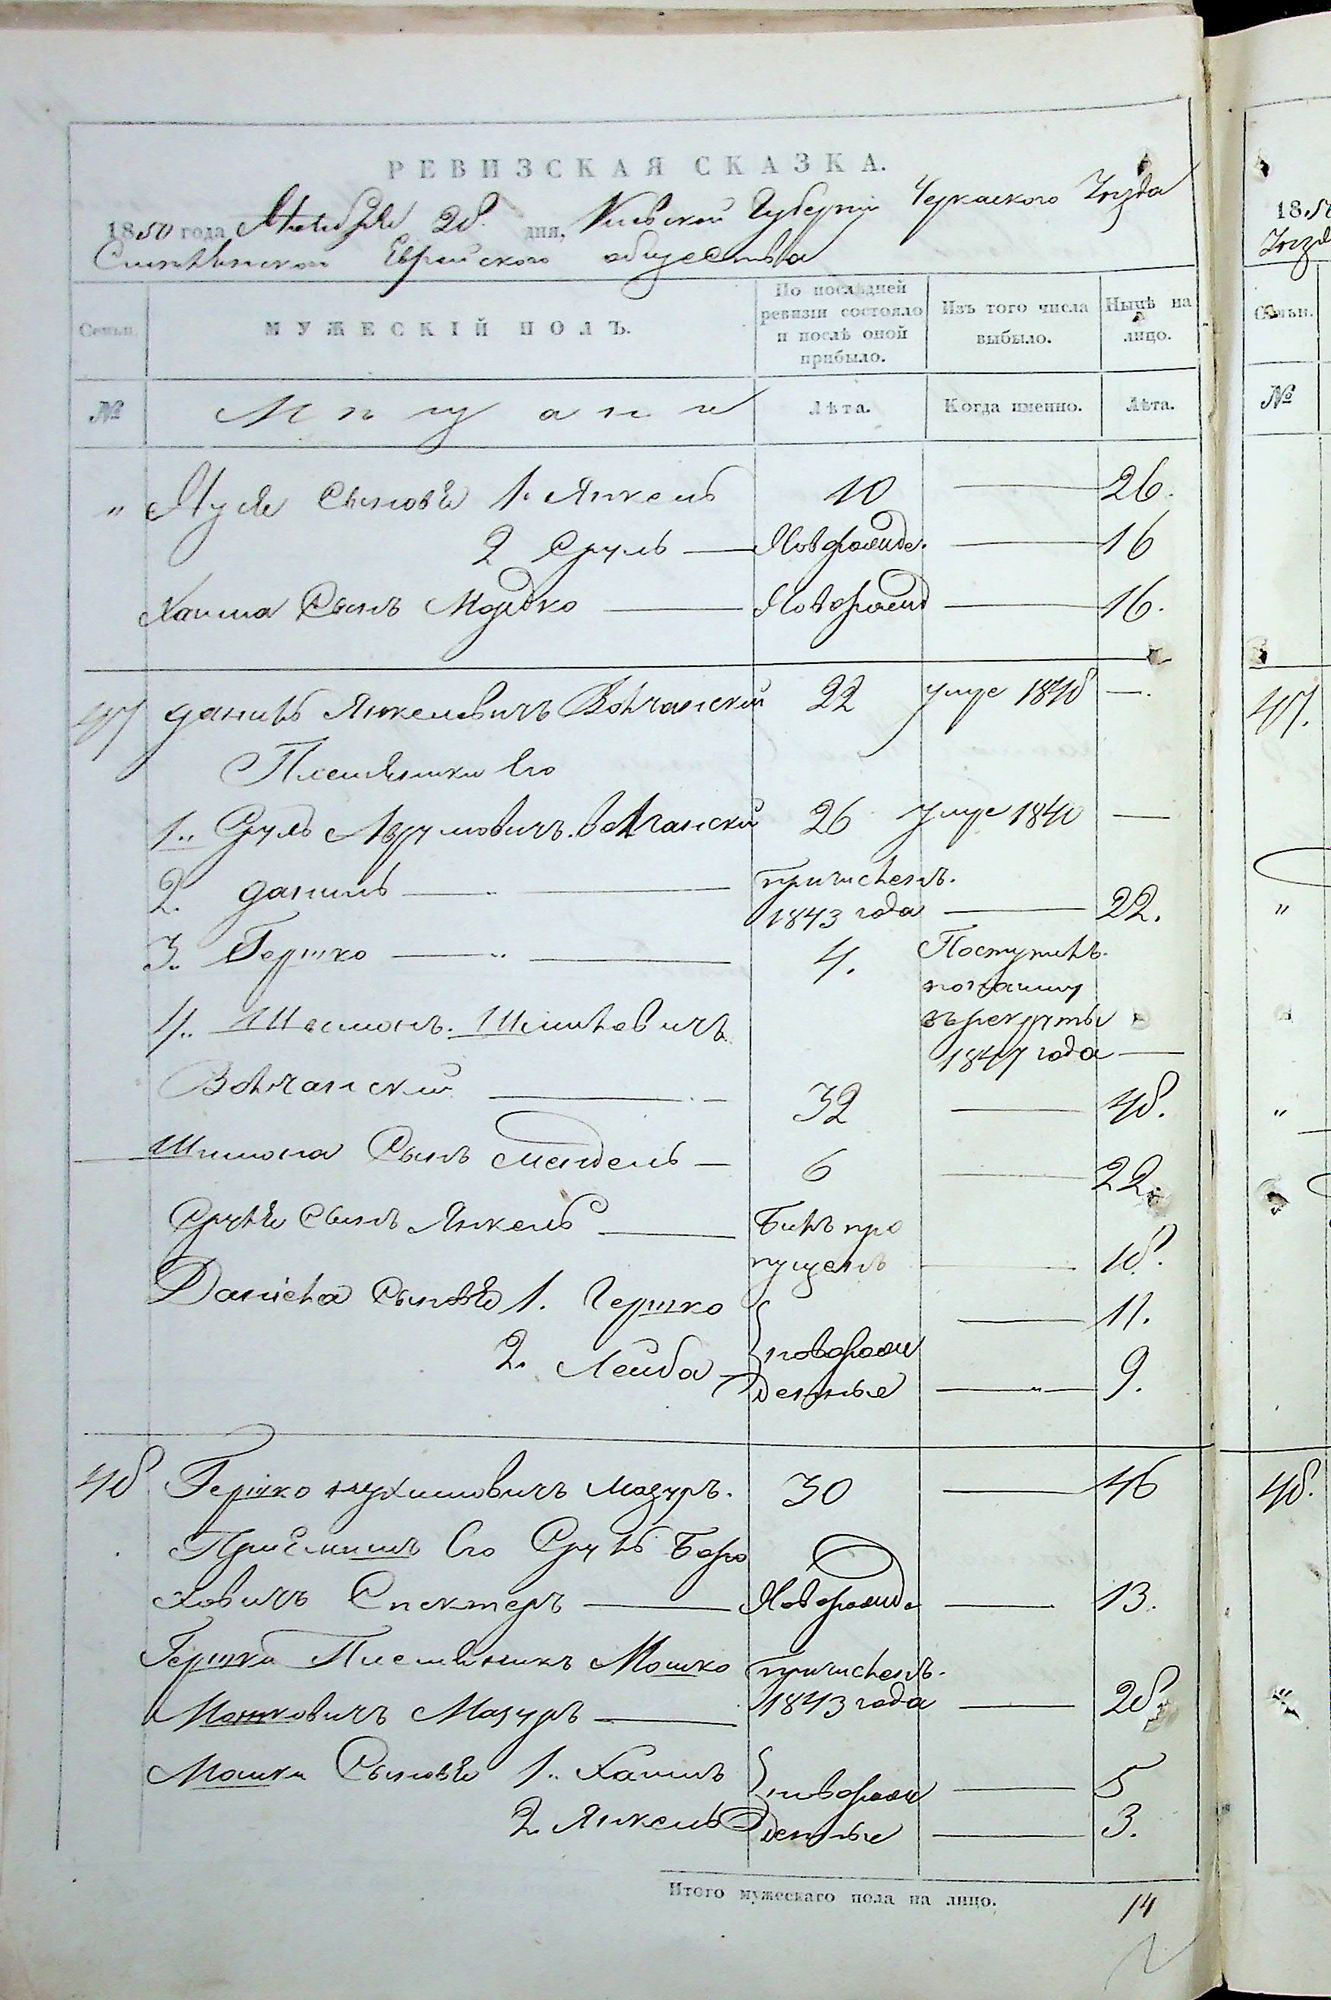 РЕВИЗСКАЯ СКАЗКА.
1850 года Октября 28 дня, Киевской Губерніи Черкаского Уезда
Смелянского Еврейского общества
Семьи.
МУЖЕСКІЙ ПОЛЪ.
По последней ревизіи состояло и послѣ оной прибыло.
Изъ того числа выбыло.
Нынѣ на лицо.
№
Мещане
Лѣта.
Когда именно.
Лѣта.
" сыновя 1. Янкель 10 — 26.
2 Сруль — Новорожде. — 16
Хаима сынъ Мордко — Новорожд — 16.
47 Данилъ Янкелевичъ Волчанский 22 умре 1848 —.
Племянники Его
1.. Сруль Аврумовичъ Волчански 26 умре 1840 —
2. Данилъ — " — причислен.
1843 года — 22.
3. Гершко — " — 4. Поступилъ
по найму
въ рекруты
1847 года —
4. Шимонъ Шмилевичъ
Волчанский — 32 — 48.
Шимона сынъ Мендель — 6 — 22.
Сруля сынъ Янкель — Былъ про
пущенъ — 18.
Данила сыновя 1. Гершко — 11.
2. Лейба — новорож
денные — " — 9.
48 Гершко Нухимовичъ Мазуръ. 30 — 46
Приемышъ Его Сруль Боро
ховичъ Спектеръ — Новорожде — 13.
Гершки Племянникъ Мошко причислен.
Мошковичъ Мазуръ — 1843 года — 28
Мошки сыновя 1.. Хаимъ новорож — 5
2. Янкель денные — 3.
Итого мужескаго пола на лицо. 14
1850
Уезда
Семьи.
№
47.
"
"
48.
"